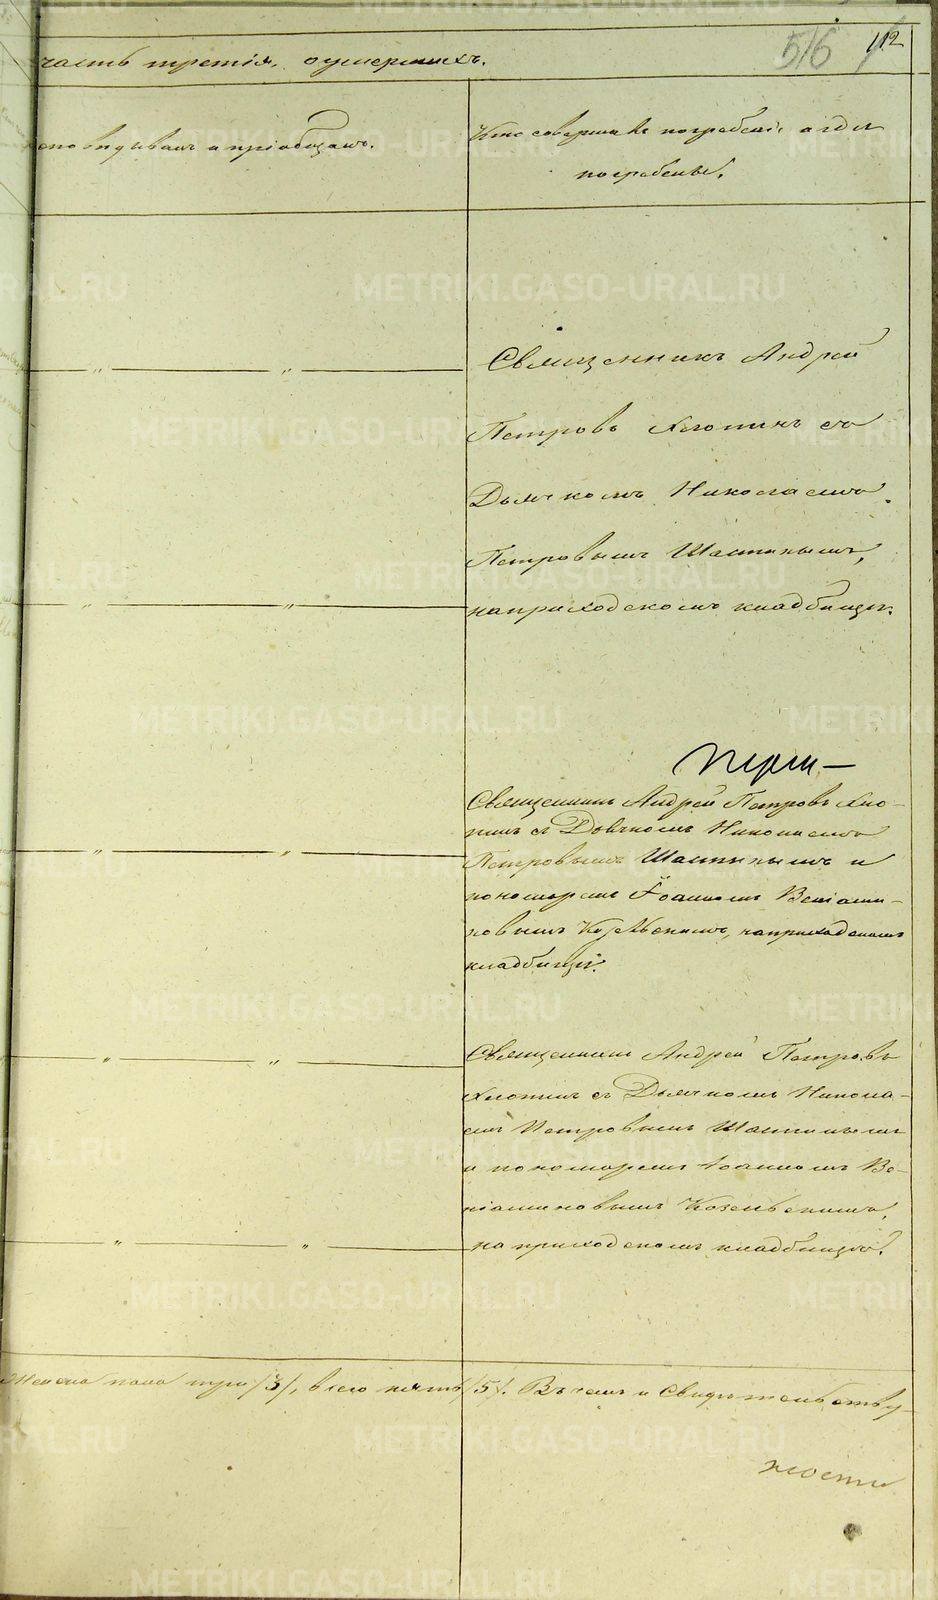 516 112
часть третія, оумершихъ.
исповѣдывалъ и пріобщалъ.
Кто совершалъ погребеніе и гдѣ
погребены.
Священникъ Андрей
Петровъ Хлопинъ съ
Дьячкомъ Николаемъ
Петровымъ Шастинымъ,
на приходскомъ кладбищѣ.
Священникъ Андрей Петровъ Хло-
пинъ съ Дьячкомъ Николаемъ
Петровымъ Шастинымъ и
пономаремъ Іоанномъ Веніами-
новымъ Козельскимъ, на приходскомъ
кладбищѣ.
Священникъ Андрей Петровъ
Хлопинъ съ Дьячкомъ Никола-
емъ Петровымъ Шастинымъ
и пономаремъ Іоанномъ Ве-
ніаминовымъ Козельскимъ,
на приходскомъ кладбищѣ.
Женска пола три /3/, всего пять /5/. Въ чемъ и Свидѣтельству-
METRIKI.GASO-URAL.RU